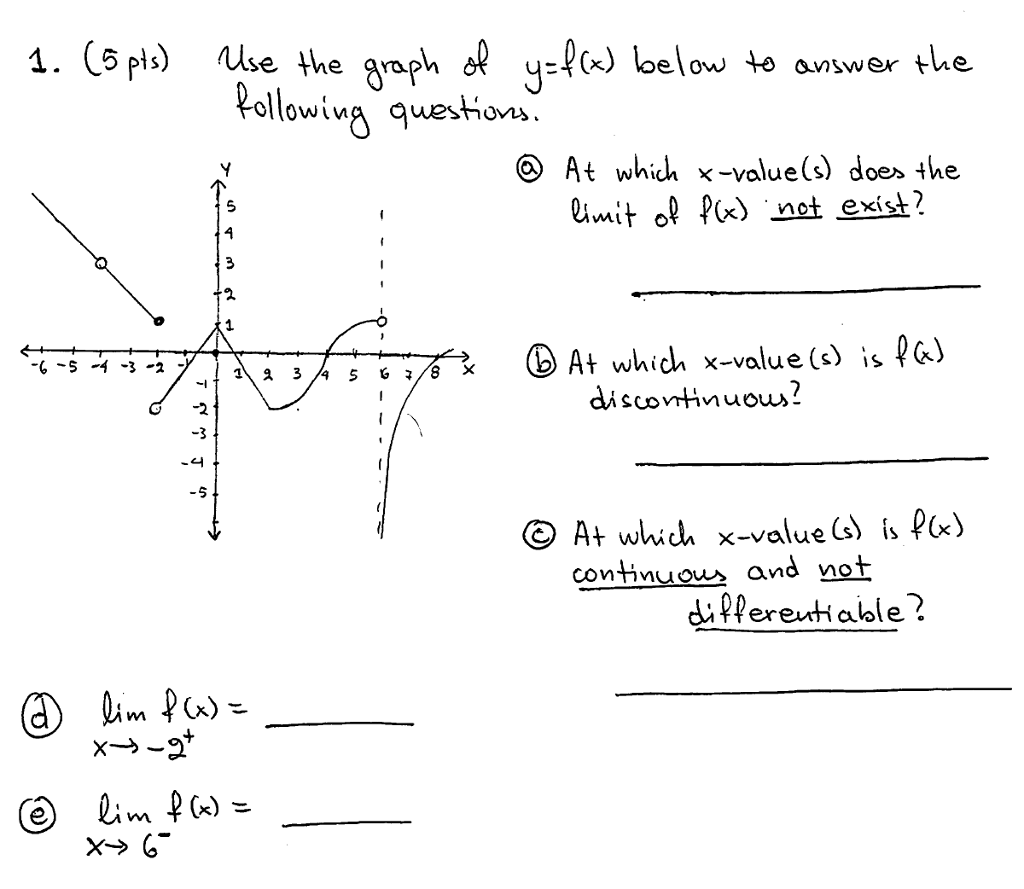 1. (5 pts) Use the graph of y=f(x) below to answer the
following questions.
Y
5
4
3
2
1
-6 -5 -4 -3 -2 -1 1 2 3 4 5 6 7 8 X
-1
-2
-3
-4
-5
ⓐ At which x-value(s) does the
limit of f(x) not exist?
ⓑ At which x-value(s) is f(x)
discontinuous?
ⓒ At which x-value(s) is f(x)
continuous and not
differentiable?
ⓓ lim f(x) =
x→-2⁺
ⓔ lim f(x) =
x→6⁻